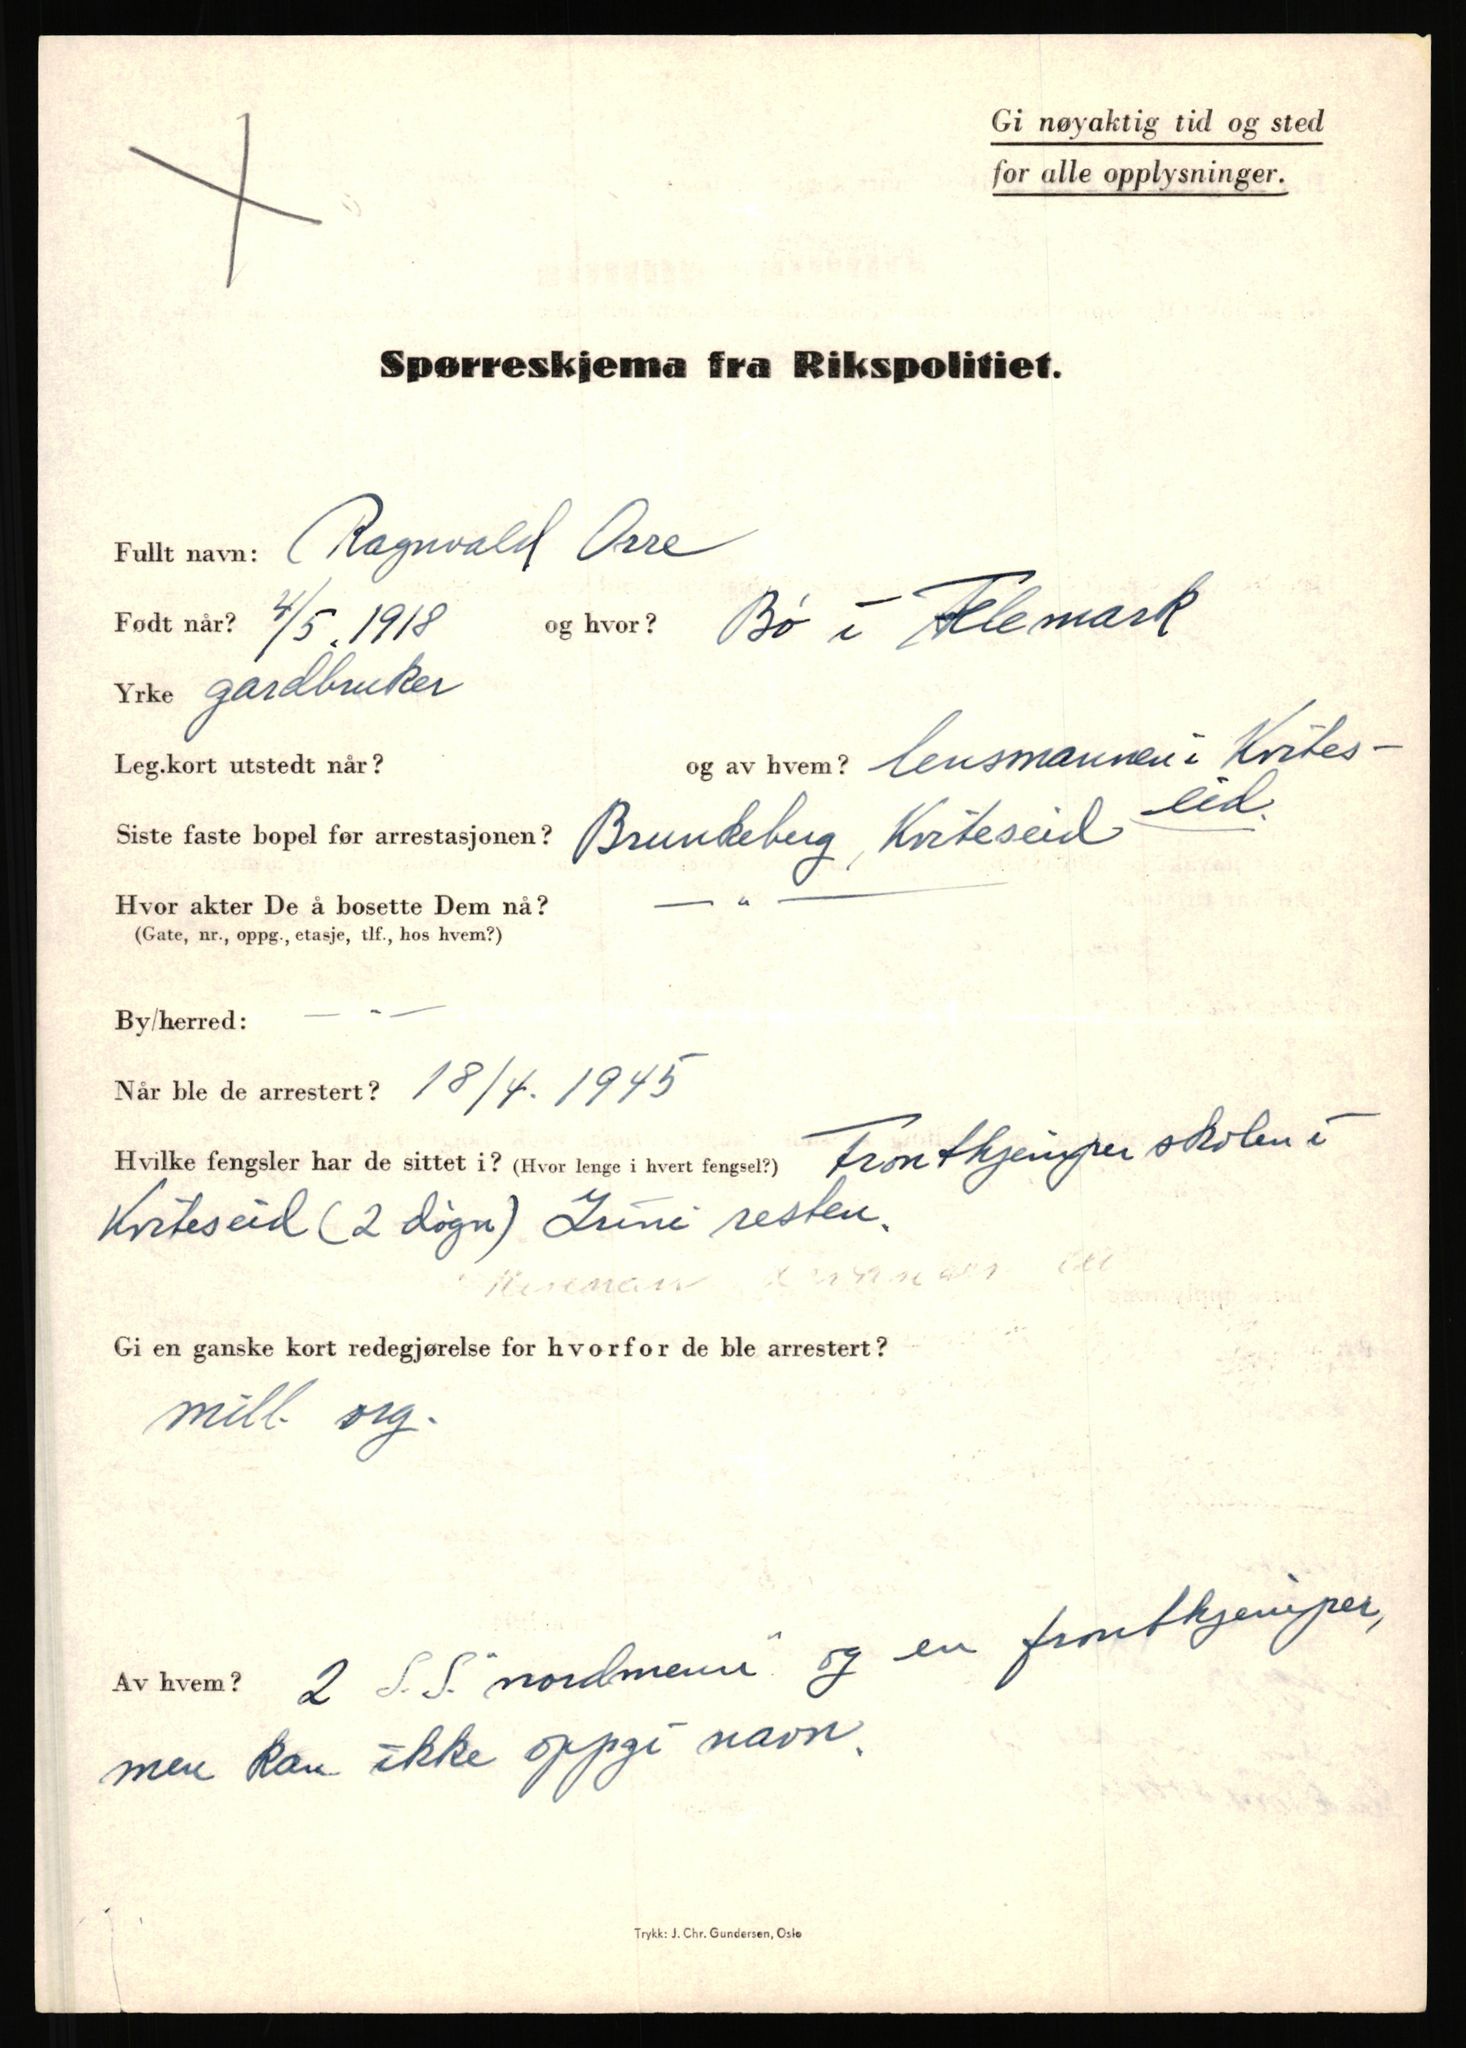 Gi nøyaktig tid og sted
for alle opplysninger.
Spørreskjema fra Rikspolitiet.
Fullt navn: Ragnvald Orre
Født når? 4/5. 1918 og hvor? Bø i Telemark
Yrke gardbruker
Leg.kort utstedt når? og av hvem? lensmannen i Kvites-
eid.
Siste faste bopel før arrestasjonen? Brunkeberg, Kviteseid
Hvor akter De å bosette Dem nå? — " —
(Gate, nr., oppg., etasje, tlf., hos hvem?)
By/herred: — " —
Når ble de arrestert? 18/4. 1945
Hvilke fengsler har de sittet i? (Hvor lenge i hvert fengsel?) Frontkjemperskolen i
Kviteseid (2 døgn) Grini resten.
Gi en ganske kort redegjørelse for hvorfor de ble arrestert?
mill. org.
Av hvem? 2 S.S. "nordmenn" og en frontkjemper,
men kan ikke oppgi navn.
Trykk: J. Chr. Gundersen, Oslo